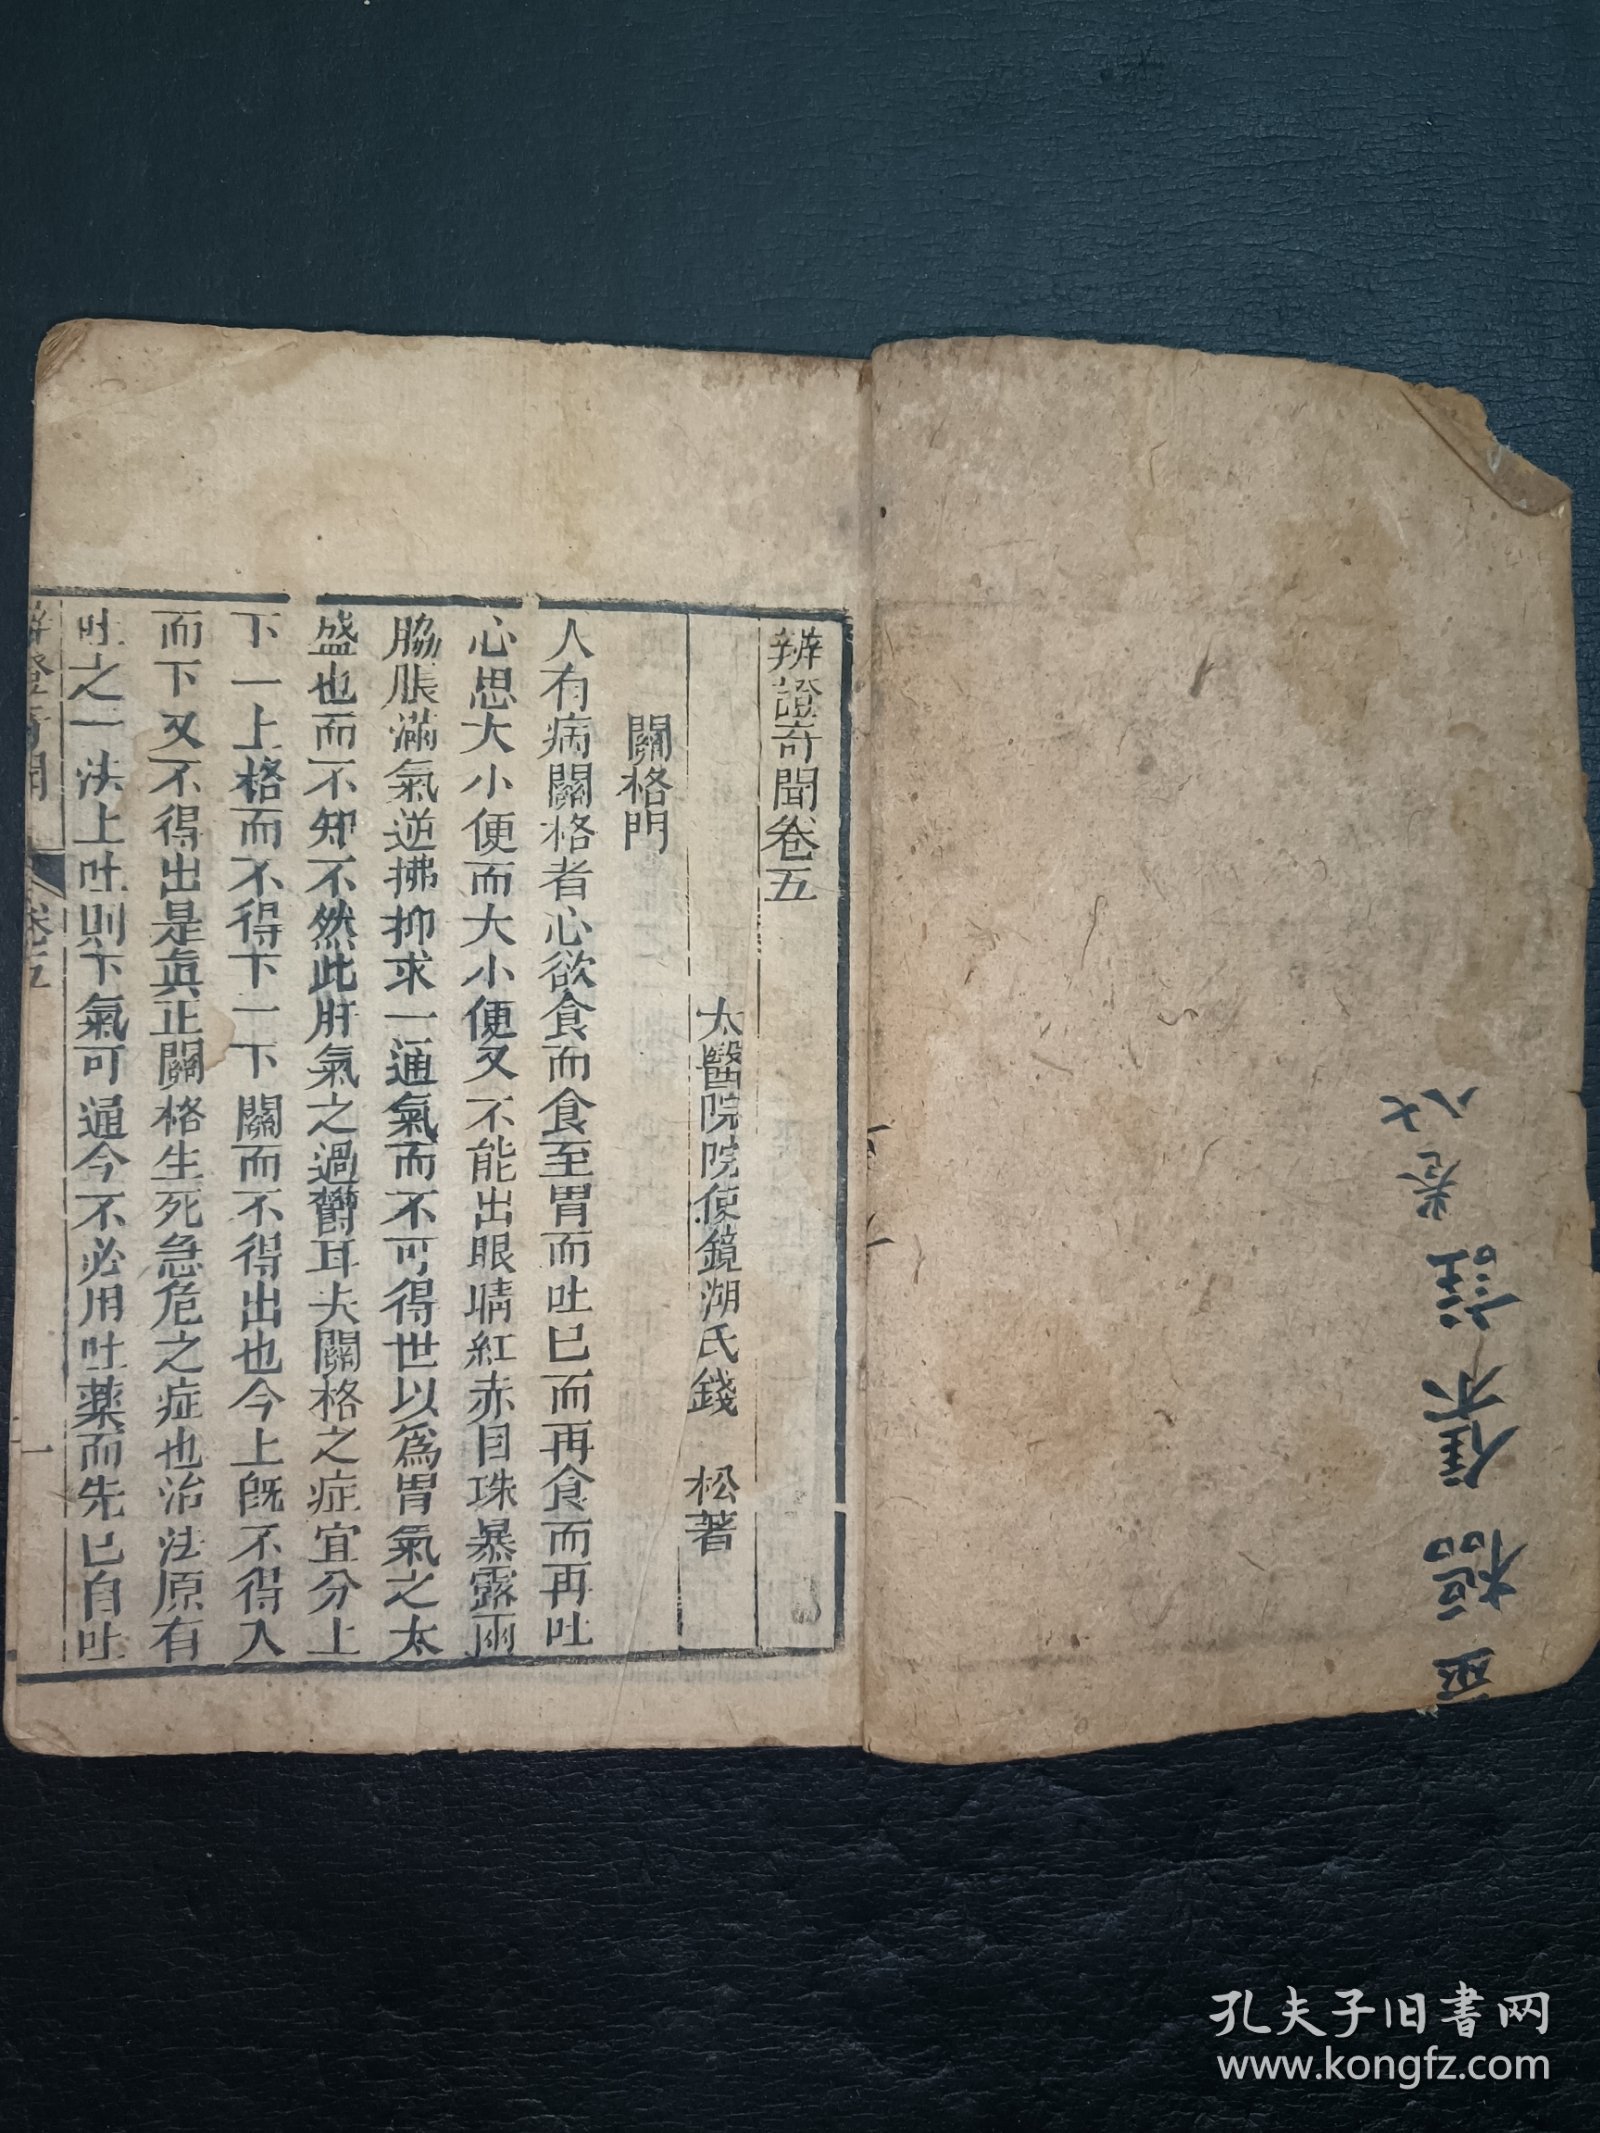 辨證奇聞卷五
太醫院院使鏡湖氏錢 松著
關格門
人有病關格者心欲食而食至胃而吐已而再食而再吐
心思大小便而大小便又不能出眼睛紅赤目珠暴露兩
脇脹滿氣逆拂抑求一通氣而不可得世以為胃氣之太
盛也而不知不然此肝氣之過鬱耳夫關格之症宜分上
下一上格而不得下一下關而不得出也今上既不得入
而下又不得出是真正關格生死急危之症也治法原有
吐之一法上吐則下氣可通今不必用吐藥而先已自吐
辨證奇聞
卷五
一
卷
七
八
孔夫子旧书网
www.kongfz.com